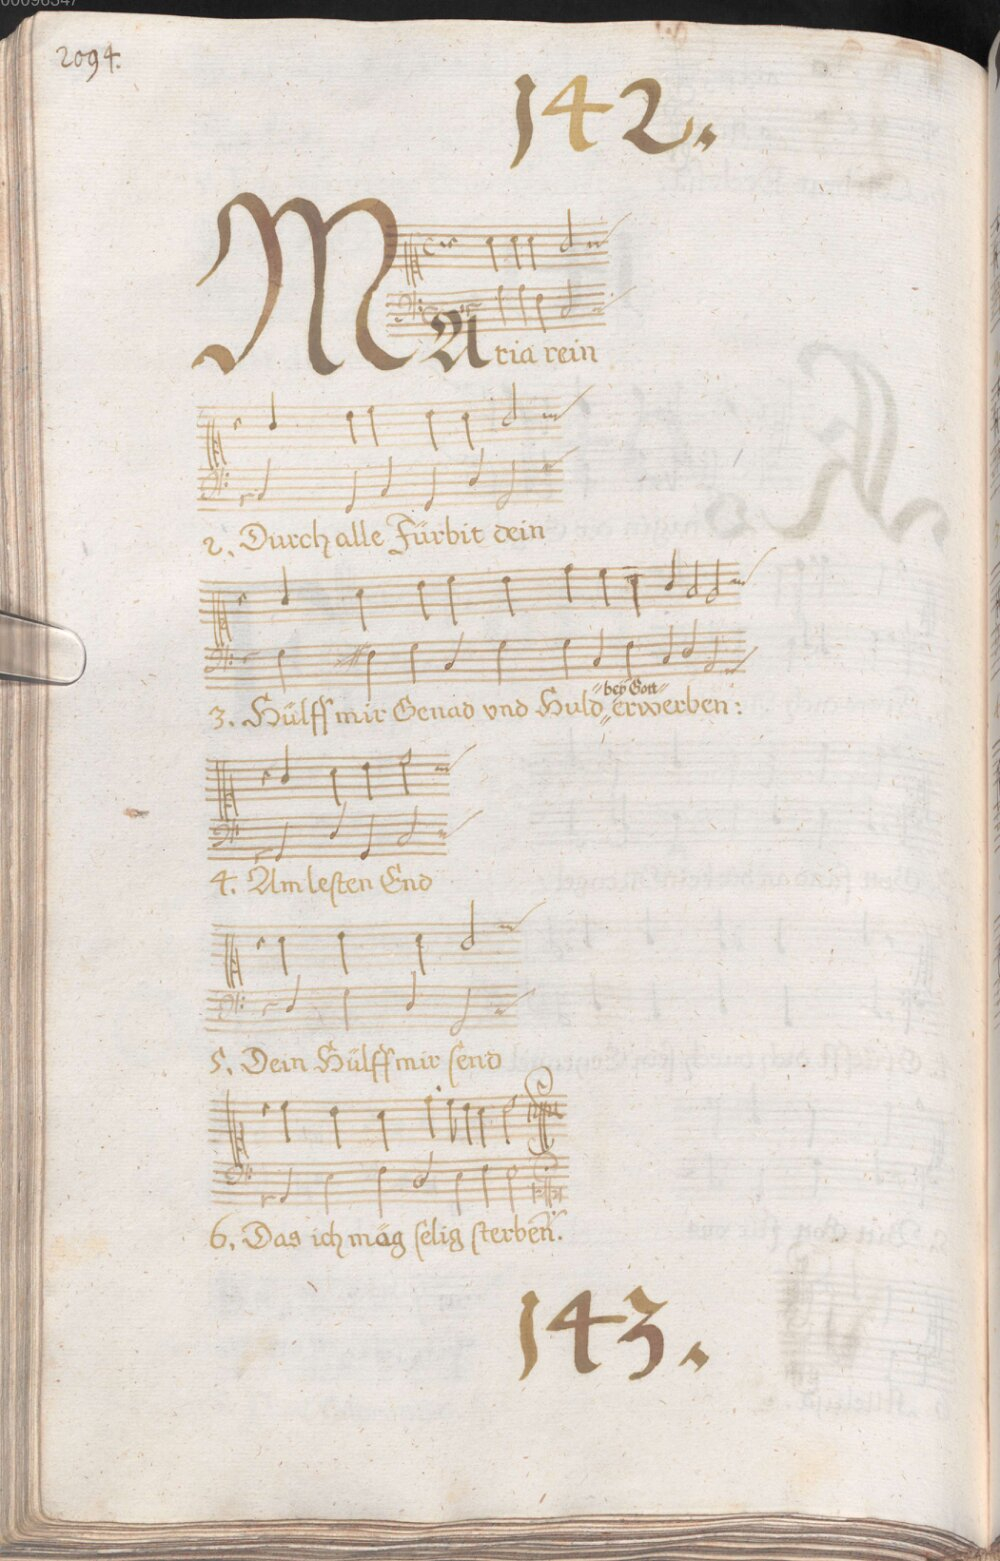 2094.
142.
MAria rein
2. Durch alle Fürbit dein
"bey Gott"
3. Hülff mir Genad vnd Huld„ erwerben:
4. Am lesten End
5. Dein Hülff mir send
6. Das ich mög selig sterben.
143.